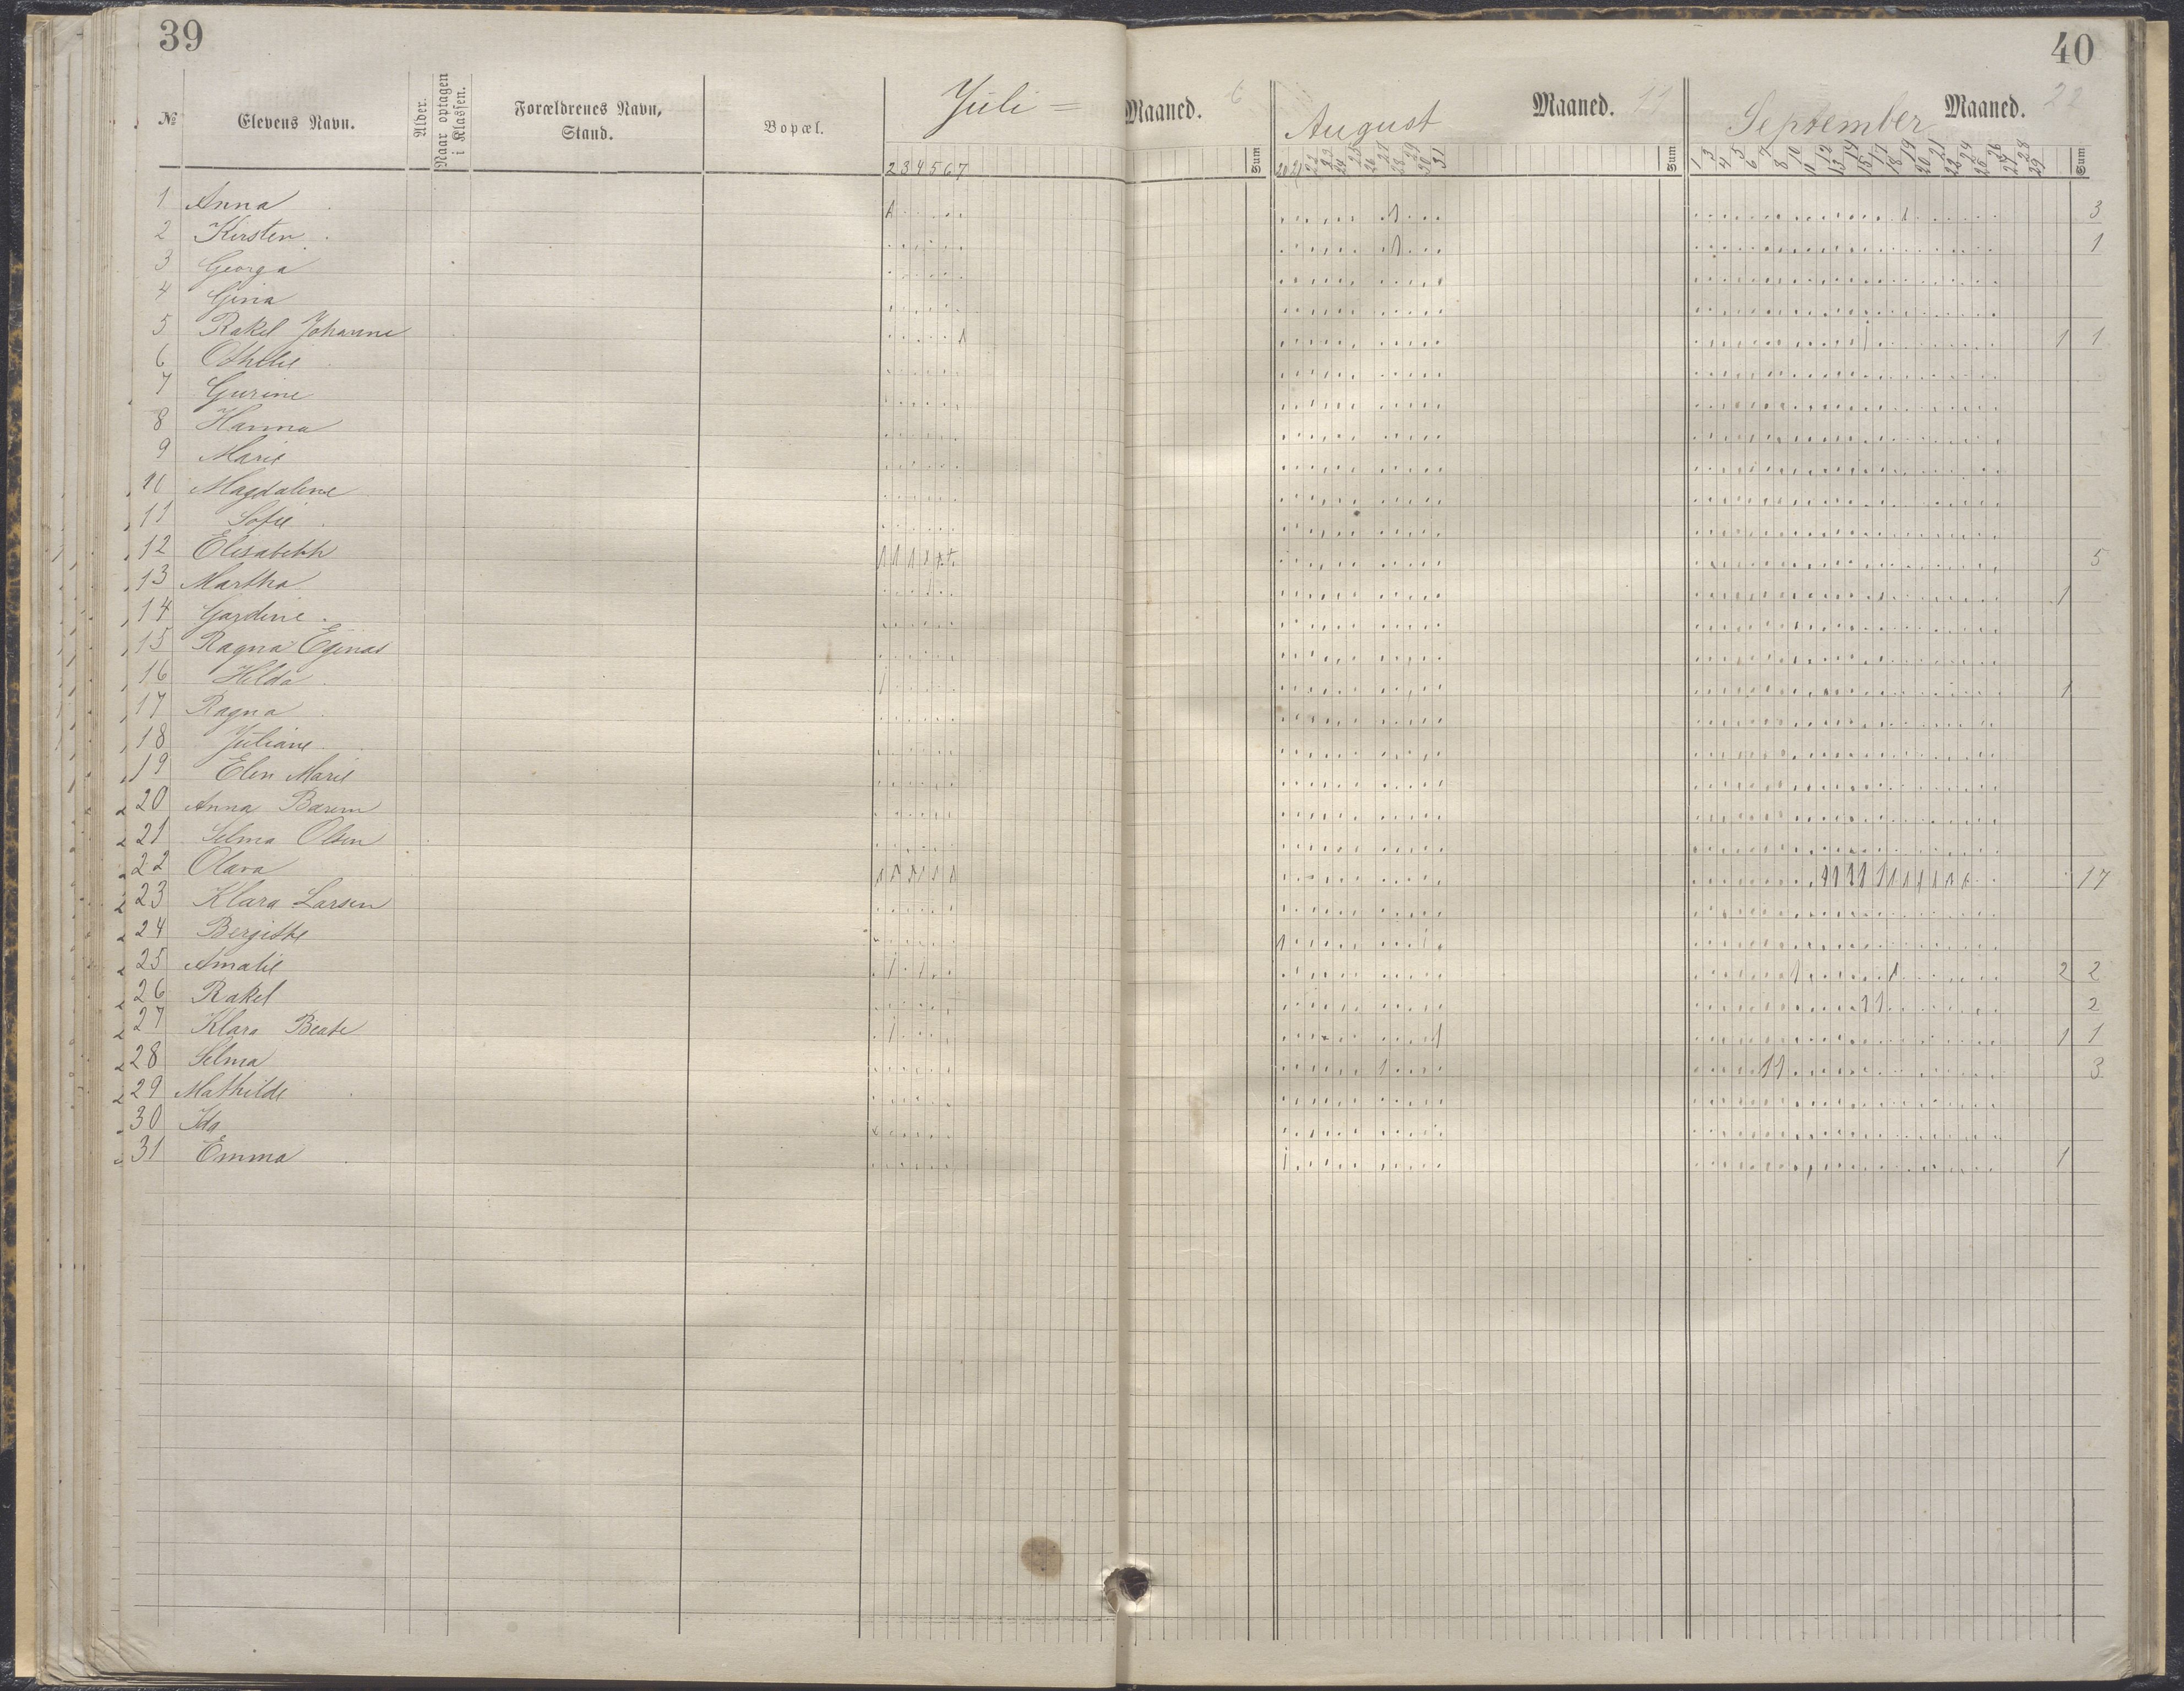 39
40
№
Elevens Navn.
Alder.
Naar optagen i Klassen.
Forældrenes Navn, Stand.
Bopæl.
Juli = Maaned. 6
August Maaned. 11
September Maaned. 22
2 3 4 5 6 7 Sum
20 21 22 23 24 25 26 27 28 29 30 31 Sum
1 3 4 5 6 7 8 10 11 12 13 14 15 17 18 19 20 21 22 24 25 26 27 28 29 Sum
1 Anna 3
2 Kirsten 1
3 Georga
4 Gina
5 Rakel Johanne 1 1
6 Othelie
7 Gurine
8 Hanna
9 Marie
10 Magdalene
11 Sofie
12 Elisabeth 5
13 Martha 1
14 Gardine
15 Ragna
16 Hilda 1
17 Ragna
18 Juliane
19 Elen Marie
20 Anna
21 Selma Olsen
22 Olava 17
23 Klara Larsen
24 Bergitte
25 Amalie 2 2
26 Rakel 2
27 Klara Beate 1 1
28 Selma 3
29 Mathilde
30 Ida
31 Emma 1